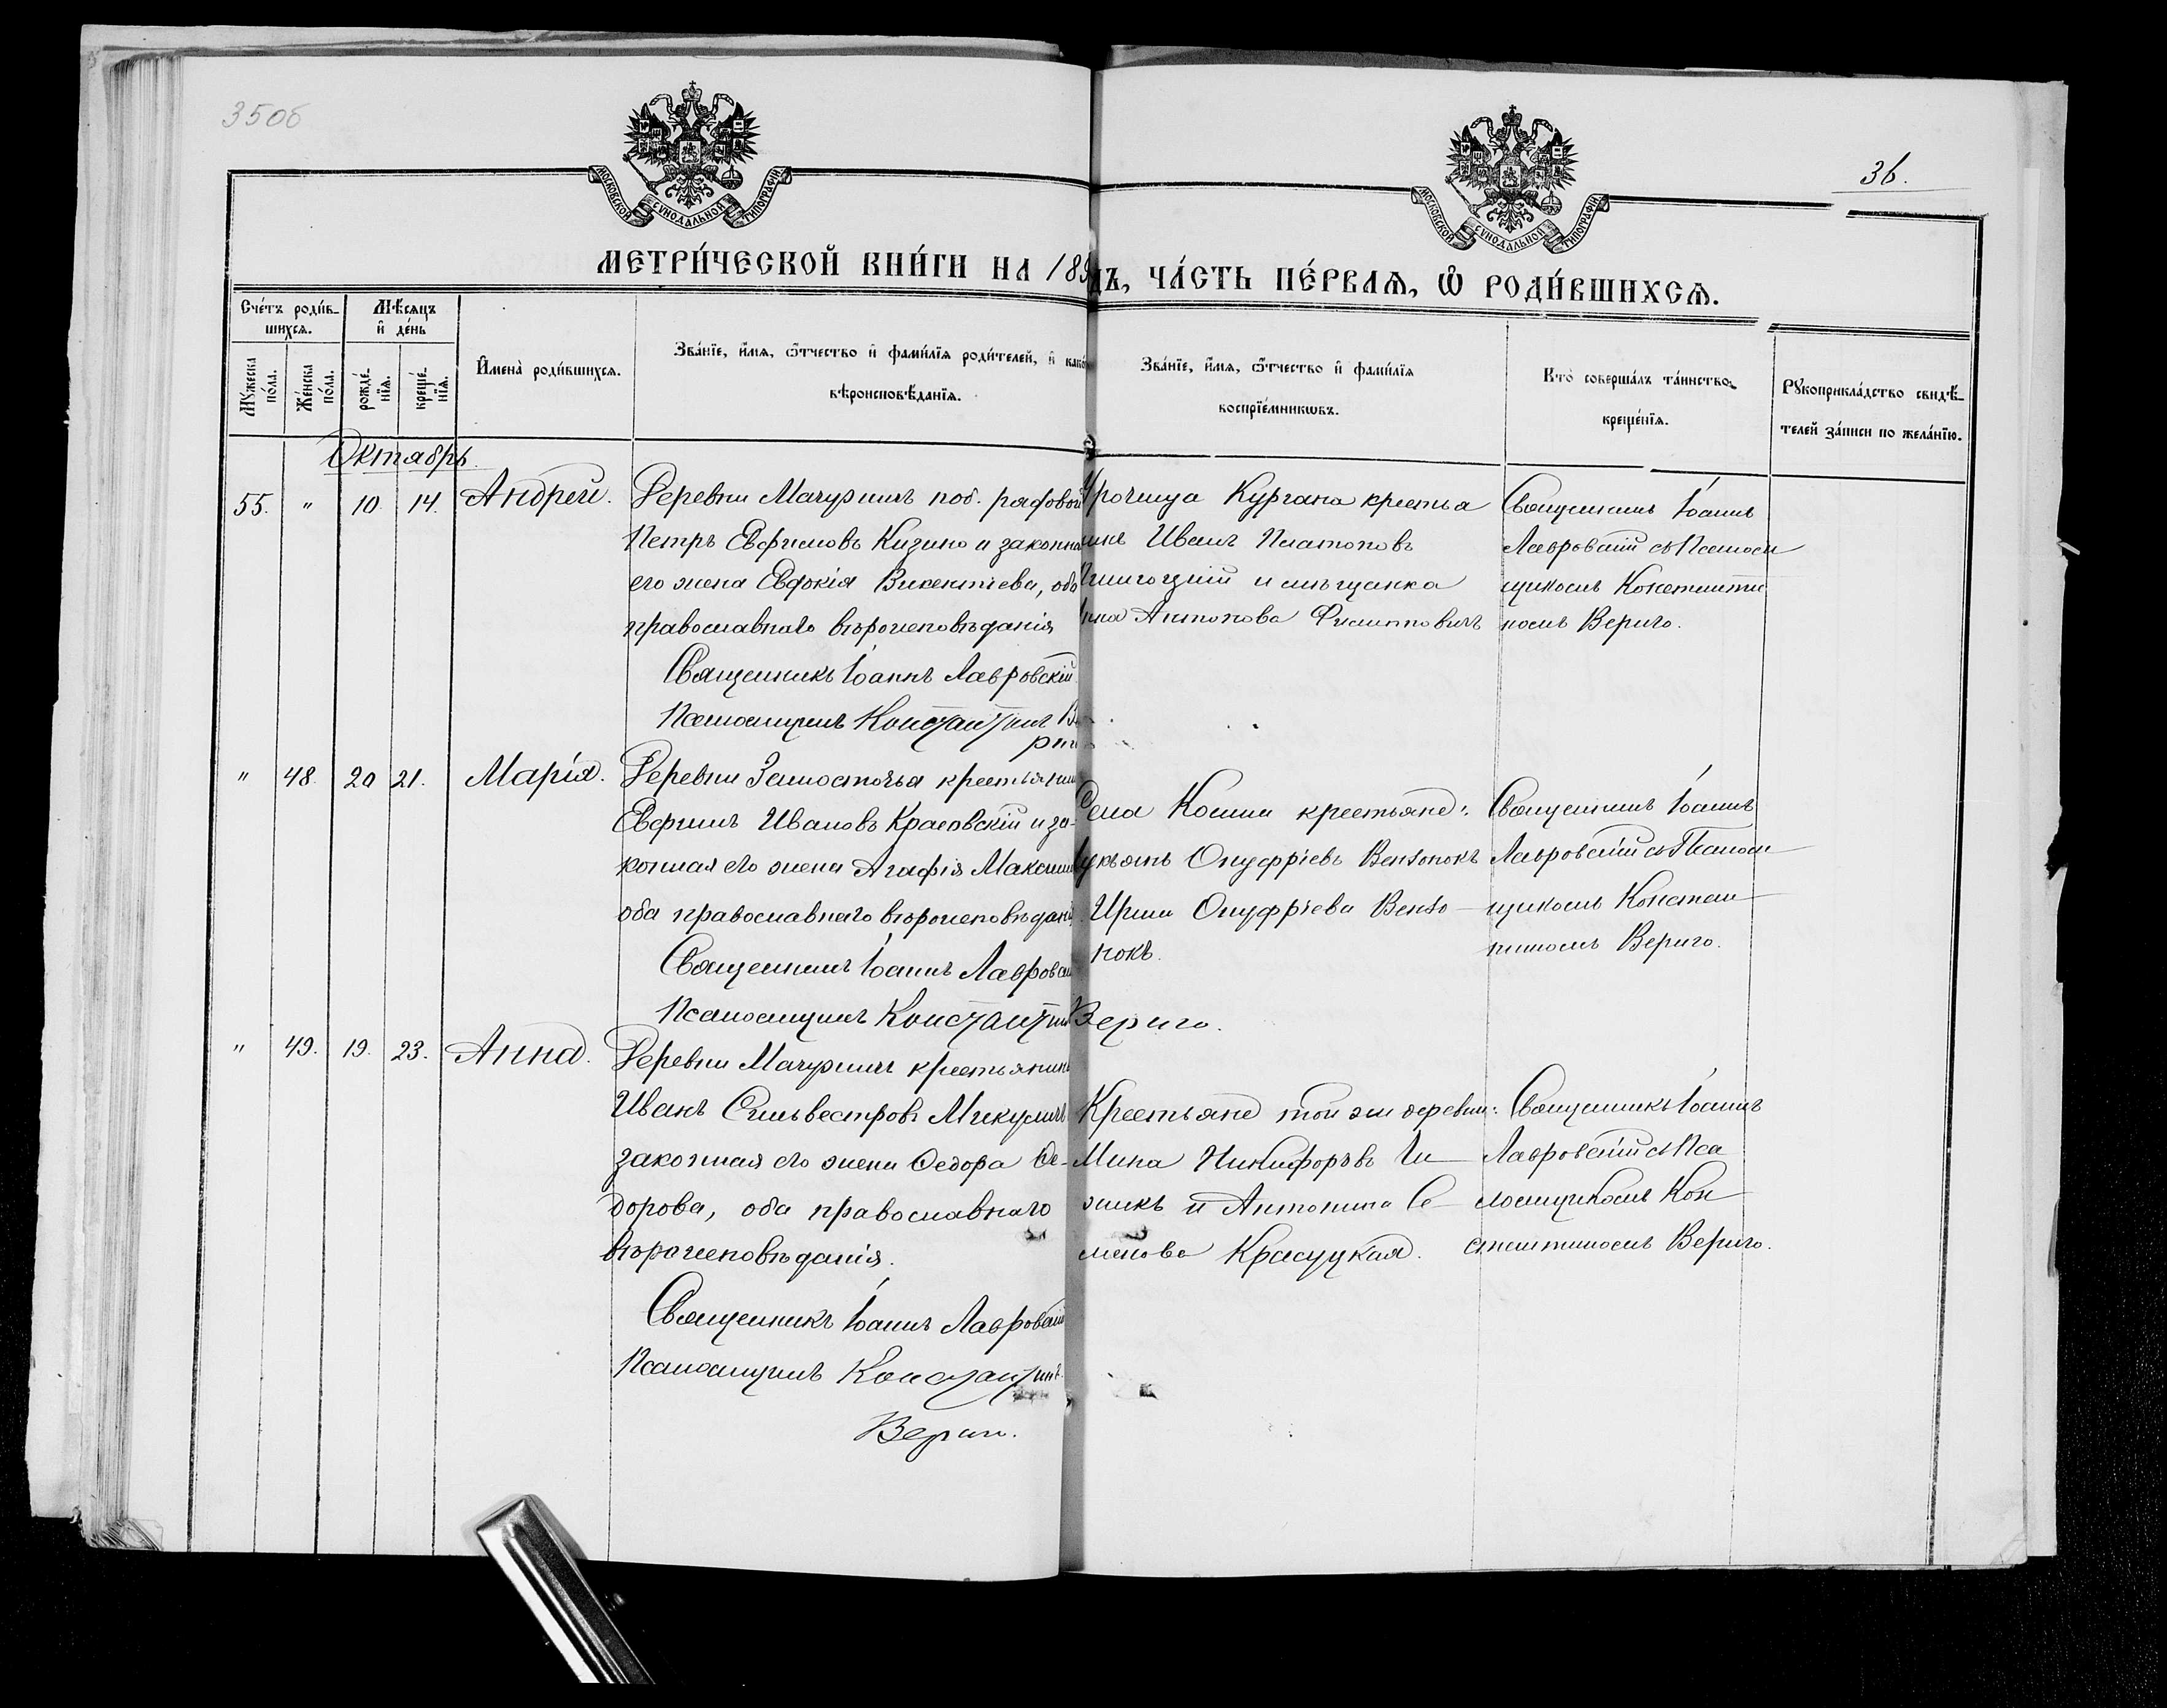 35об
36.
МОСКОВСКОЙ СѴНОДАЛЬНОЙ ТИПОГРАФІИ
МОСКОВСКОЙ СѴНОДАЛЬНОЙ ТИПОГРАФІИ
МЕТРИ́ЧЕСКОЙ КНИ́ГИ НА 189
ДЪ, ЧА́СТЬ ПЕ́РВАѦ, Ѡ҆ РОДИ́ВШИХСѦ.
Сче́тъ роди́в-
шихсѧ.
Мѣ́сѧцъ
и҆ де́нь
Мꙋ́жеска
по́ла.
Же́нска
по́ла.
рожде́-
нїѧ.
креще́-
нїѧ.
И҆мена̀ роди́вшихсѧ.
Зва́нїе, и҆́мѧ, ѻ҆́тчество и҆ фами́лїѧ роди́телей, и҆ како́
вѣроисповѣ́данїѧ.
Зва́нїе, и҆́мѧ, ѻ҆́тчество и҆ фами́лїѧ
воспрїе́мникѡвъ.
Кто̀ соверша́лъ та́инство
креще́нїѧ.
Рꙋкоприкла́дство свидѣ́-
телей за́писи по жела́нїю.
Октябрь
55. " 10. 14. Андрей.
Деревни Мачулищъ поб. рядовой
Петръ Евфимовъ Кизино и законна
его жена Евдокія Викентіева, оба
православнаго вѣроисповѣданія
Священникъ Іоаннъ Лавровскій
Псаломщикъ Константинъ В
риго
Урочища Кургана крестья
нинъ Иванъ Платоновъ
и мѣщанка
Антонова Филипповичъ
Священникъ Іоаннъ
Лавровскій съ Псалом
щикомъ Константи
номъ Вериго.
" 48. 20 21. Марія.
Деревни Замосточья крестьянинъ
Евфимъ Ивановъ Красовскій и за-
конная его жена Агафія Максимова
оба православнаго вѣроисповѣданія
Священникъ Іоаннъ Лавровскій
Псаломщикъ Константинъ Вериго.
Села крестьяне:
Лукьянъ Онуфріевъ
Онуфріева
нокъ.
Священникъ Іоаннъ
Лавровскій съ Псалом
щикомъ Констан
тиномъ Вериго.
" 49. 19. 23. Анна.
Деревни Мачулищъ крестьянинъ
Иванъ Сильвестровъ Микуличъ
законная его жена Федора Фе-
дорова, оба православнаго
вѣроисповѣданія.
Священникъ Іоаннъ Лавровскій
Псаломщикъ Константинъ
Вериго.
Крестьяне той же деревни:
Мина Никифоровъ Чи
жикъ и Антонина Се
менова Красуцкая.
Священникъ Іоаннъ
Лавровскій съ Пса
ломщикомъ Кон
стантиномъ Вериго.